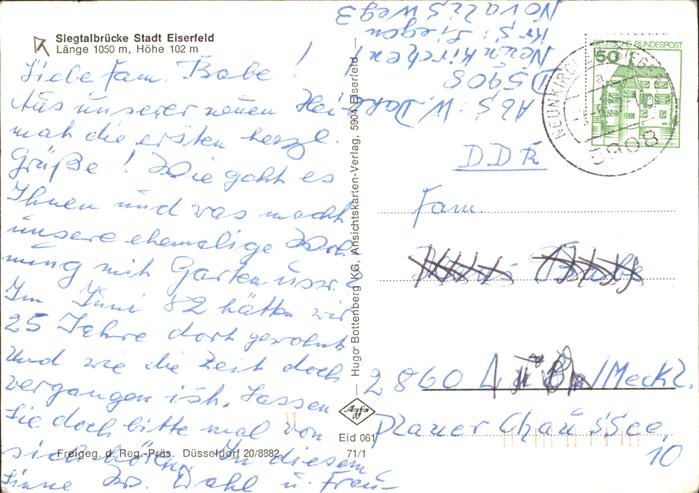 Siegtalbrücke Stadt Eiserfeld
Länge 1050 m, Höhe 102 m
Liebe Fam. Babe!
Aus unserer neuen Hei-
mat die ersten herzl.
Grüße! Wie geht es
Ihnen und was macht
unsere ehemalige Woh-
nung mit Garten usw.?
Im Juni 82 hätten wir
25 Jahre dort gewohnt
Und wie die Zeit doch
vergangen ist. Lassen
Sie doch bitte mal von
sich hören. In diesem
Sinne W. Dahl u. Frau-
Freigeg. d. Reg.-Präs. Düsseldorf 20/8882
Hugo Bottenberg KG. Ansichtskarten-Verlag, 5904 Eiserfeld
Agfa
Eid 061
71/1
Abs: W. Dahl
D 5908
Neunkirchen
Krs: Siegen
Novalisweg 3
DEUTSCHE BUNDESPOST
50
NEUNKIRCHEN
5908
DDR
Fam.
Babe
2860 Lübz/Meckl.
Plauer Chaussee
10